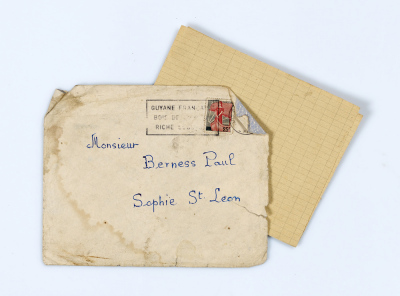 GUYANE FRANÇAISE
BOIS DE
RICHE
Monsieur
Berness Paul
Sophie St. Leon